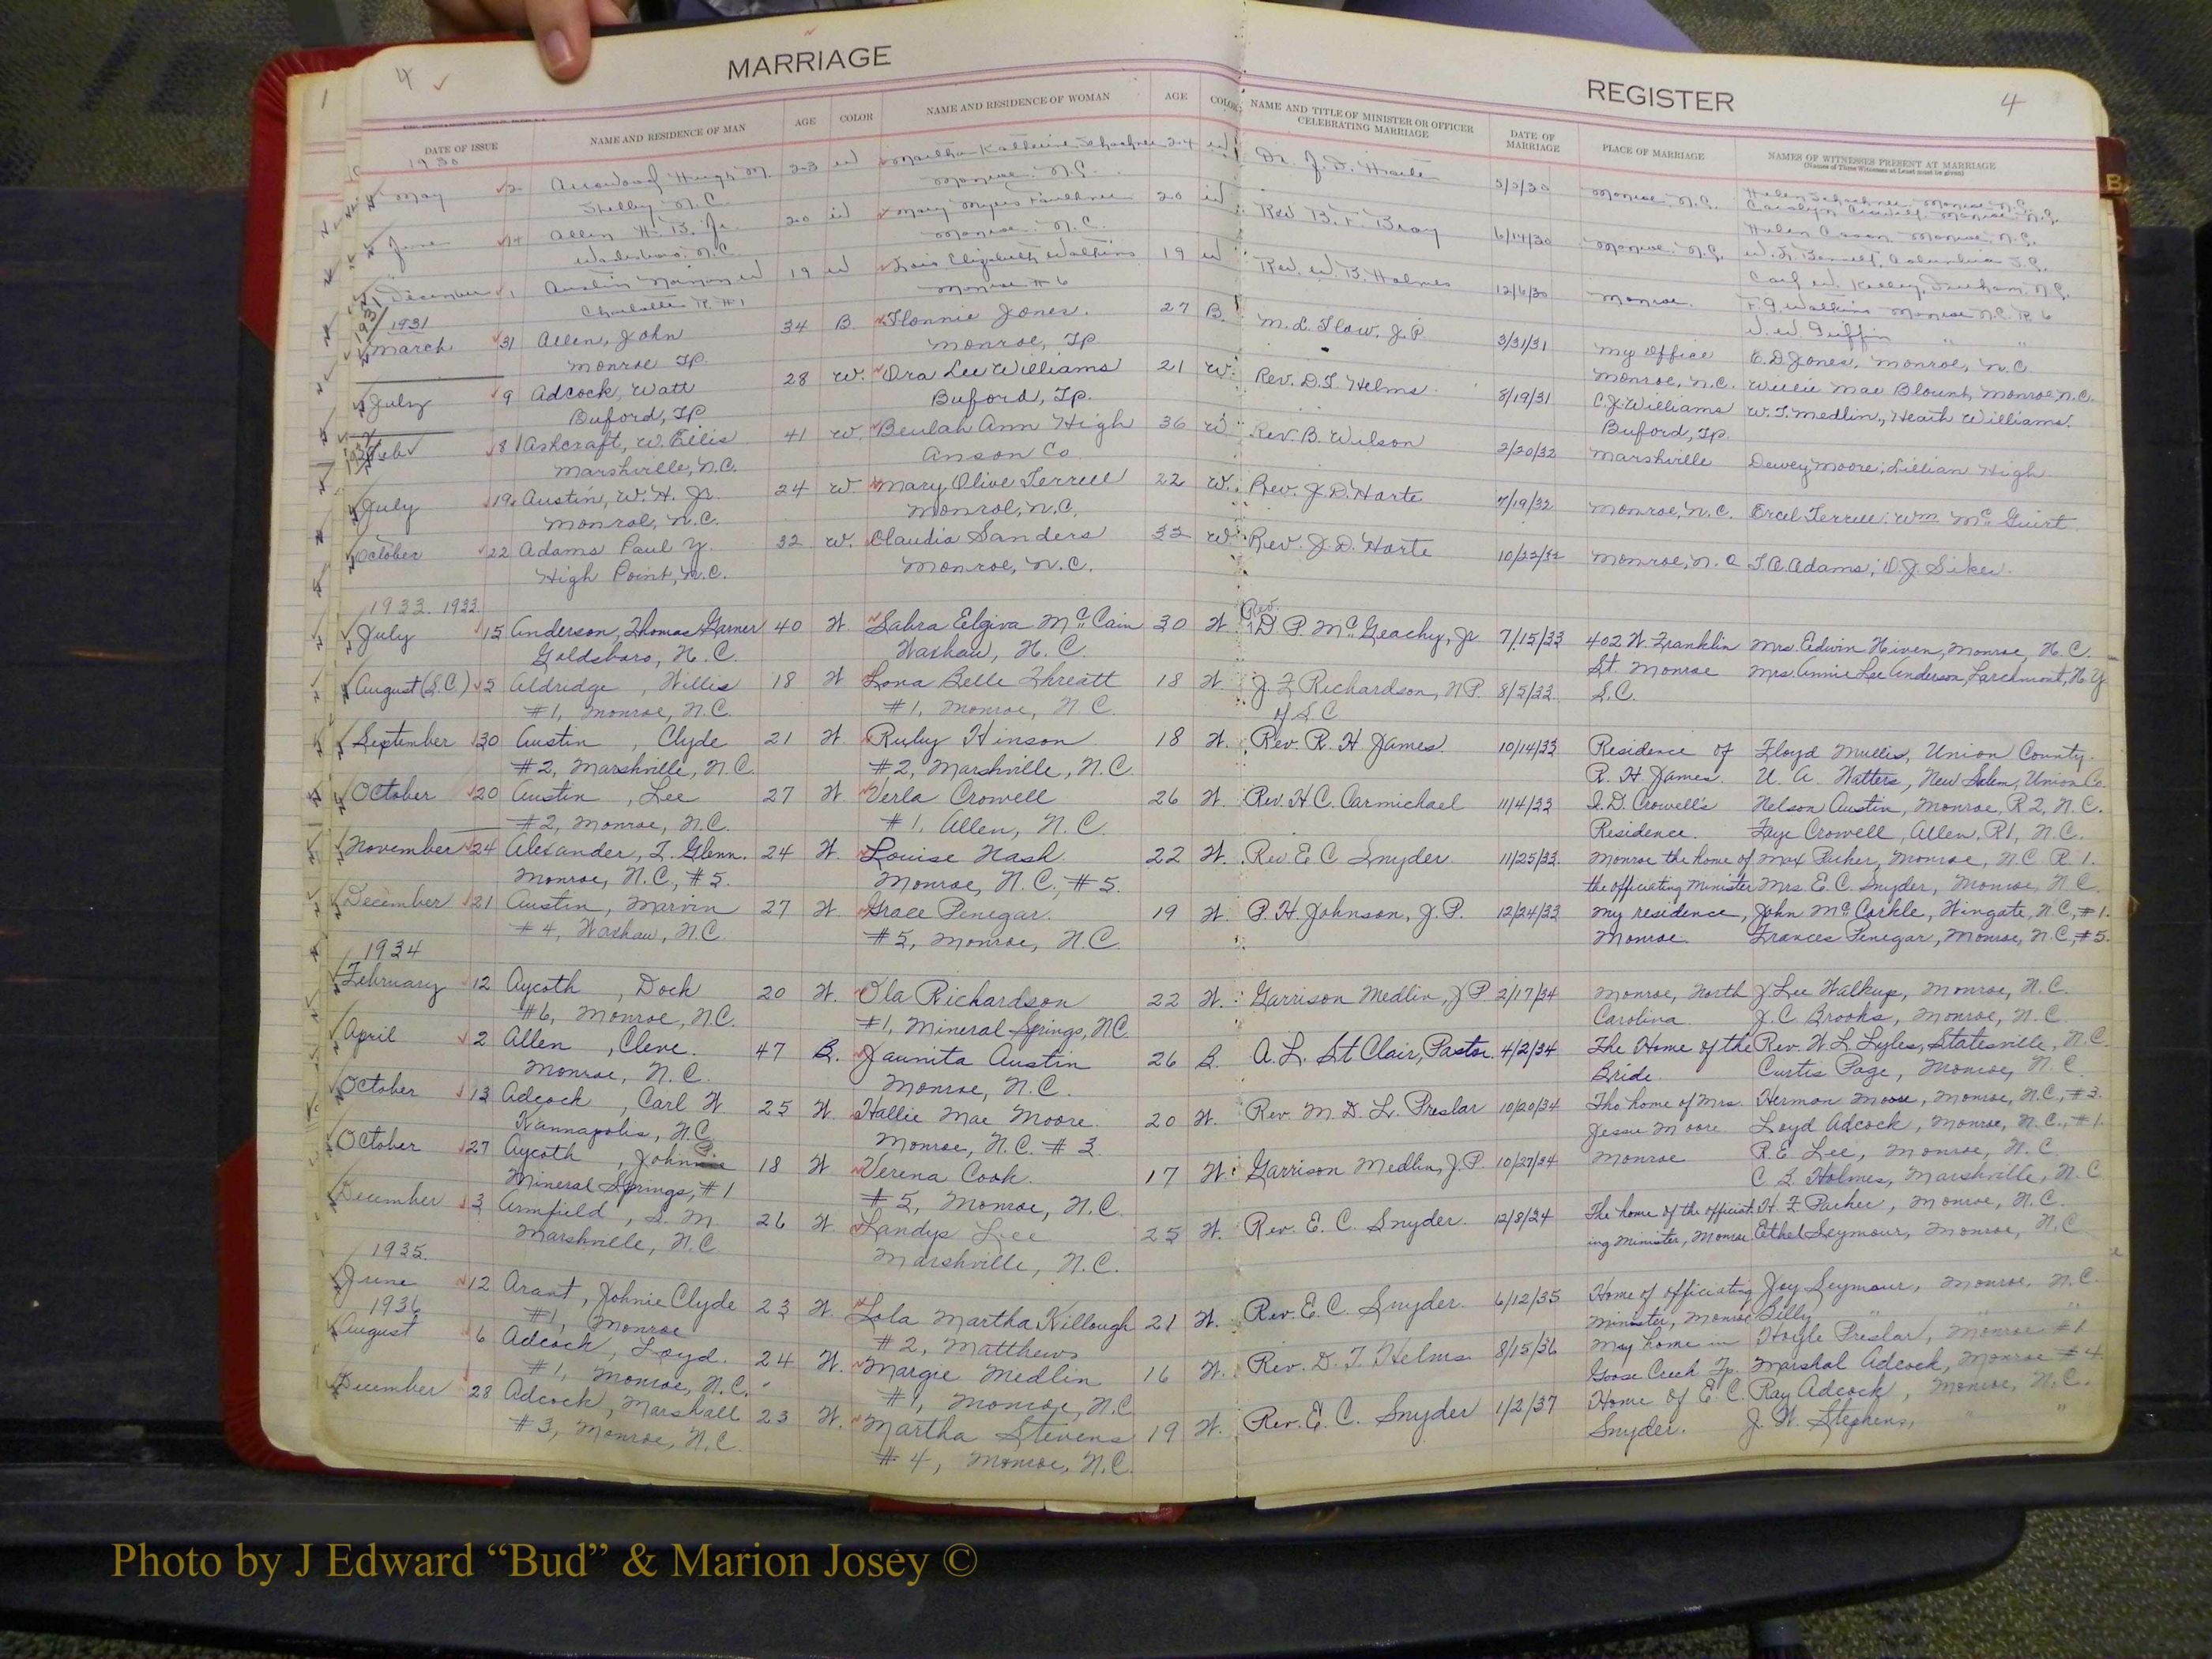 MARRIAGE
REGISTER
4
4
1
DATE OF ISSUE
NAME AND RESIDENCE OF MAN
AGE
COLOR
NAME AND RESIDENCE OF WOMAN
AGE
COLOR
NAME AND TITLE OF MINISTER OR OFFICER
CELEBRATING MARRIAGE
DATE OF
MARRIAGE
PLACE OF MARRIAGE
NAMES OF WITNESSES PRESENT AT MARRIAGE
(Names of Three Witnesses at Least must be given)
1930
May 2 Hugh M. 23 W Martha Katherine 24 W Dr. J. D. Harte 5/2/30 Monroe, N.C. Helen Monroe, N.C.
Shelby N.C. Monroe. N.C. Carolyn Monroe, N.C.
Helen Monroe, N.C.
June 14 Allen H. B. Jr. 20 W Mary Myers Faulkner 20 W Rev B. F. Bray 6/14/30 Monroe. N.C. Columbia S.C.
Wadesboro. N.C Monroe. N.C. Carl W. Kelley, Durham. N.C.
December 1 Austin W 19 W Lois Elizabeth Watkins 19 W Rev. W. B. Holmes 12/6/30 Monroe. Watkins Monroe N.C. R. 6
Charlotte R. #1 Monroe #6 W W Griffin " "
1931
March 31 Allen, John 34 B. Flonnie Jones. 27 B. M. L. Flow. J. P. 3/31/31 My Office E. D. Jones, Monroe, N.C.
Monroe TP. Monroe, TP Monroe, N.C. Willie Mae Blount, Monroe N.C.
July 9 Adcock, Watt 28 W. Ora Lee Williams 21 W. Rev. D. T. Helms 8/19/31 C. J. Williams W. T. Medlin., Heath Williams.
Buford, TP Buford, Tp. Buford, Tp.
Feb 8 Ashcraft, W. Ellis 41 W. Beulah Ann High 36 W Rev. B. Wilson 2/20/32 Marshville Dewey Moore; Lillian High
Marshville, N.C. Anson Co.
July 19 Austin, W. H. Jr. 24 W Mary Olive Terrell 22 W. Rev. J. D. Harte 7/19/32 Monroe, N.C. Ercel Terrell. Wm. McGuirt
Monroe, N.C. Monroe, N.C.
October 22 Adams Paul Y. 32 W. Claudia Sanders 33 W. Rev. J. D. Harte 10/22/32 Monroe, N. C T. A. Adams; O. J. Sikes.
High Point, N.C. Monroe, N.C.
1933 1933
July 15 Anderson, Thomas Garner 40 W. Sabra Elgiva McCain 30 W. Rev. D. P. McGeachy, Jr 7/15/33 402 W. Franklin Mrs. Edwin Niven, Monroe, N.C.
Goldsboro, N.C. Waxhaw, N.C. St. Monroe Mrs. Annie Lee Anderson, Larchmont, N.Y.
August (S.C.) 5 Aldridge, Willis 18 W Lona Belle Threatt 18 W. J. F. Richardson, N P. 8/5/33 S.C.
#1, Monroe, N.C. #1, Monroe, N.C. of S.C
September 30 Austin, Clyde 21 W. Ruby Hinson 18 W. Rev. R. H James. 10/14/33 Residence of Floyd Mullis, Union County.
#2, Marshville, N.C. #2, Marshville, N.C. R. H James. U. A. Watters, New Salem, Union Co.
October 20 Austin, Lee 27 W Verla Crowell 26 W Rev. H C. Carmichael 11/4/33 I. D. Crowell's Nelson Austin, Monroe, R 2, N.C.
#2, Monroe, N.C. #1, Allen, N.C Residence. Faye Crowell, Allen, R1, N.C.
November 24 Alexander, T. Glenn. 24 W. Louise Nash. 22 W. Rev. E. C Snyder 11/25/33 Monroe the home of Max Parker, Monroe, N.C. R 1.
Monroe, N.C., #5. Monroe, N.C., #5. the officiating Minister Mrs. E. C. Snyder, Monroe, N.C.
December 21 Austin, Marvin 27 W. Grace Penegar. 19 W. P. H. Johnson, J.P. 12/24/33 my residence, John McCorkle, Wingate, N.C., #1.
#4, Waxhaw, N.C. #5, Monroe, N.C. Monroe. Frances Penegar, Monroe, N.C., #5.
1934
February 12 Aycoth, Dock 20 W. Ola Richardson 22 W. Garrison Medlin, J P 2/17/34 Monroe, North J Lee Walkup, Monroe, N.C.
#6, Monroe, N.C. #1, Mineral Springs, N.C. Carolina J. C Brooks, Monroe, N.C.
April 2 Allen, Cleve. 47 B. Jaunita Austin 26 B. A. L. St Clair, Pastor. 4/2/34 The Home of the Rev. W. L. Lyles, Statesville, N.C.
Monroe, N.C. Monroe, N.C. Bride. Curtis Page, Monroe, N.C
October 13 Adcock, Carl W 25 W. Hallie Mae Moore. 20 W. Rev. M. D. L. Preslar 10/20/34 The home of Mrs. Herman Moore, Monroe, N.C., #3.
Kannapolis, N.C. Monroe, N.C. #3 Jessie Moore Loyd Adcock, Monroe, N.C., #1.
October 27 Aycoth, John P. 18 W Verena Cook. 17 W. Garrison Medlin, J.P. 10/27/34 Monroe R. E. Lee, Monroe, N.C.
Mineral Springs, #1 #5, Monroe, N.C. C. L Holmes, Marshville, N.C
December 3 Armfield, S. M. 26 W. Landys Lee 25 W. Rev. E. C. Snyder. 12/8/34 The home of the officiat. H. F Parker, Monroe, N.C.
Marshville, N.C Marshville, N.C. ing Minister, Monroe Ethel Seymour, Monroe, N.C
1935.
June 12 Arant, Johnie Clyde 23 W. Lola Martha Killough 21 W. Rev. E. C. Snyder. 6/12/35 Home of officiating Joy Seymour, Monroe, N.C.
#1, Monroe #2, Matthews Minister, Monroe Billy " " "
1936
August 6 Adcock, Loyd. 24 W. Margie Medlin 16 W. Rev. D. T. Helms 8/15/36 My home in Hoyle Preslar, Monroe #1
#1, Monroe, N.C. #1, Monroe, N.C Goose Creek Tp. Marshal Adcock, Monroe #4
December 28 Adcock, Marshall 23 W. Martha Stevens 19 W. Rev. E. C. Snyder 1/2/37 Home of E. C. Ray Adcock, Monroe, N.C.
#3, Monroe, N.C. #4, Monroe, N.C. Snyder. J. W. Stephens, " "
Photo by J Edward “Bud” & Marion Josey ©